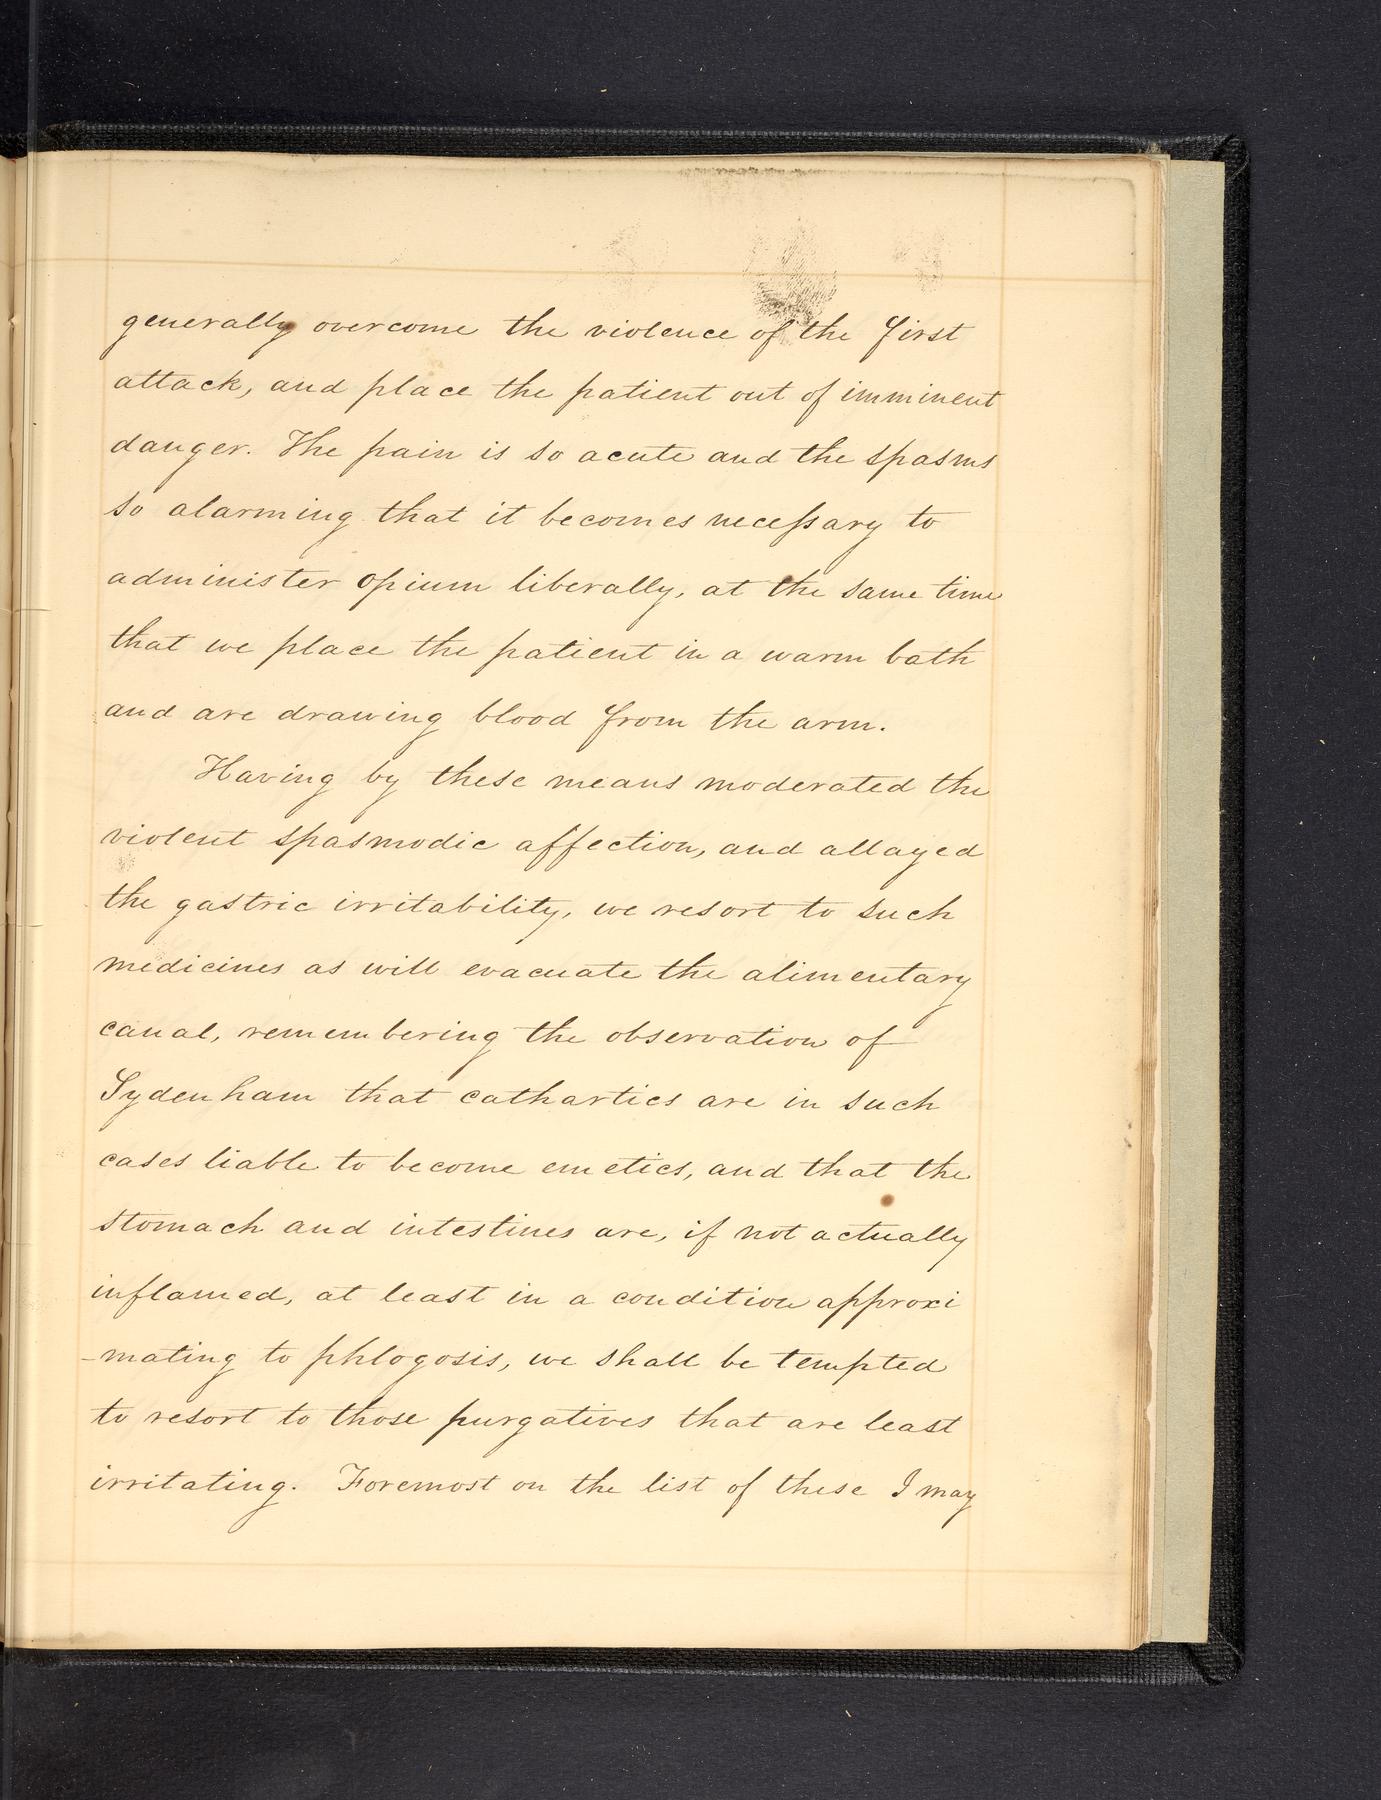 generally overcome the violence of the first
attack, and place the patient out of imminent
danger. The pain is so acute and the spasms
so alarming that it becomes neceſsary to
administer opium liberally, at the same time
that we place the patient in a warm bath
and are drawing blood from the arm.
Having by these means moderated the
violent spasmodic affection, and allayed
the gastric irritability, we resort to such
medicines as will evacuate the alimentary
canal, remembering the observation of
Sydenham that cathartics are in such
cases liable to become emetics, and that the
stomach and intestines are, if not actually
inflamed, at least in a condition approxi
-mating to phlogosis, we shall be tempted
to resort to those purgatives that are least
irritating. Foremost on the list of these I may